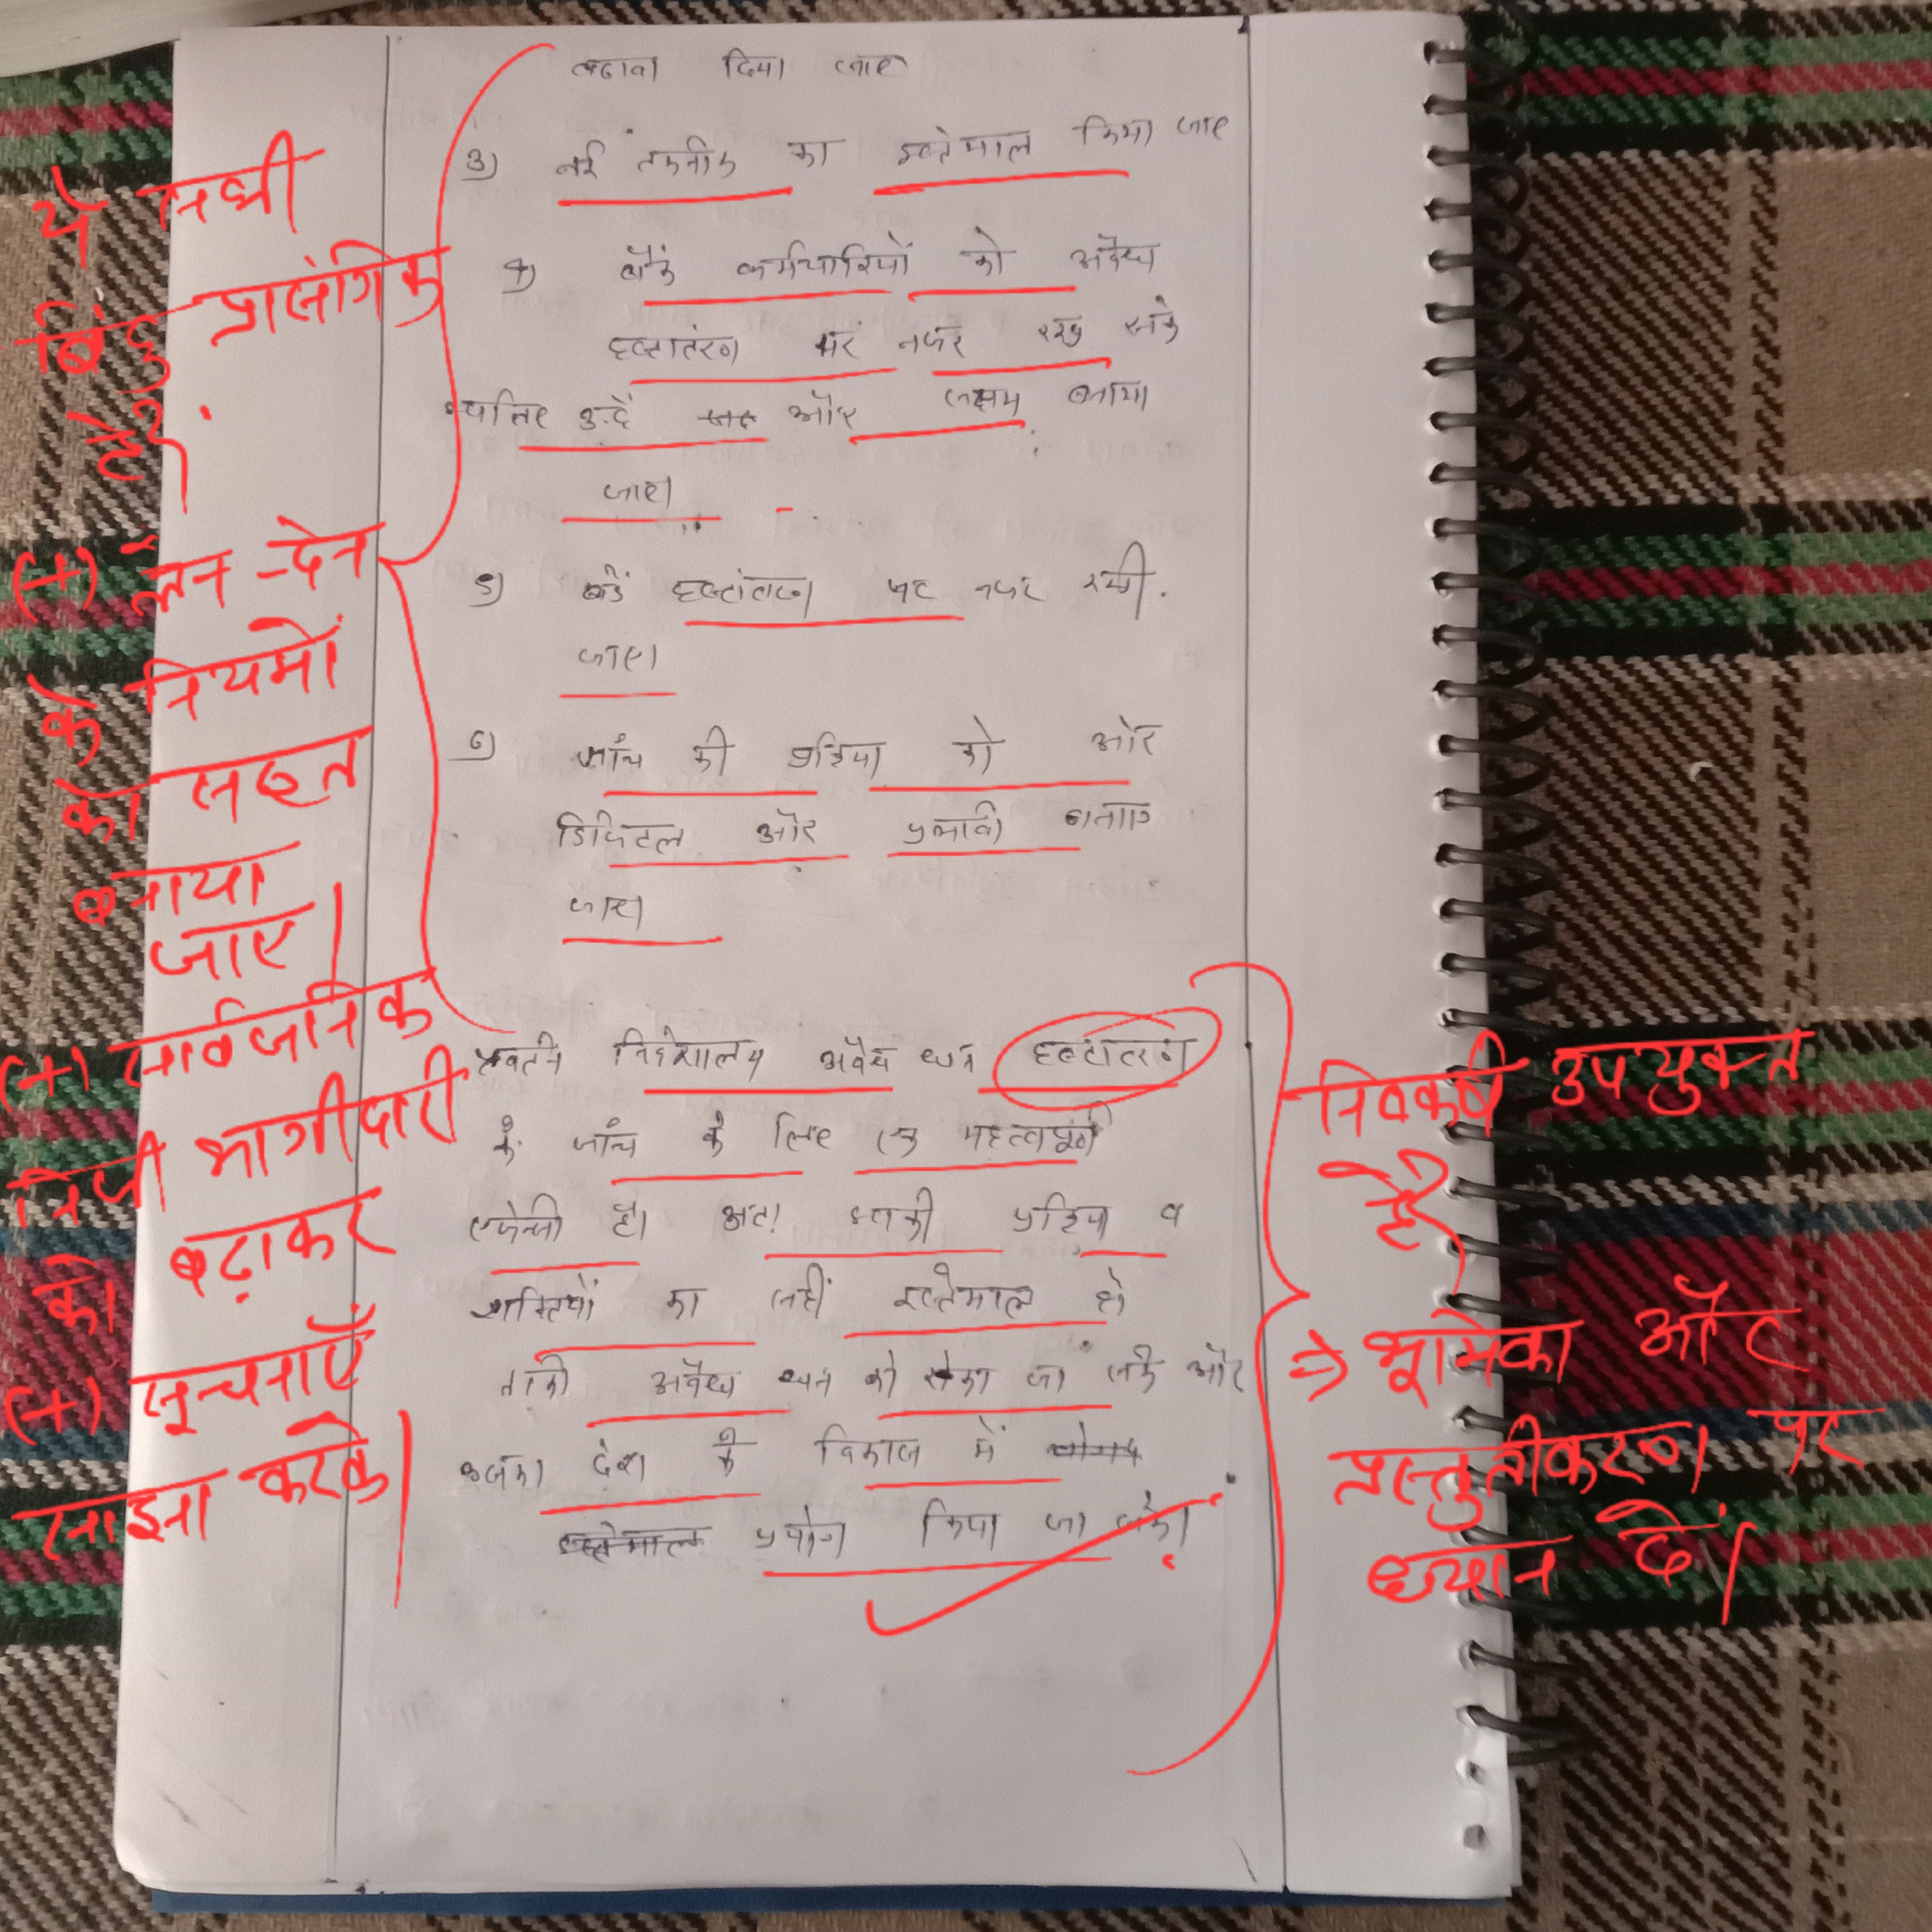 बढावा दिया जाए
3) नई तकनीक का इस्तेमाल किया जाए
4) बैंक कर्मचारियों को अवैध
हस्तातंरण पर नजर रख सके
इसलिए उन्हें और सक्षम बनाया
जाए।
5) बडें हस्तांतरण पर नजर रखी
जाए।
6) जांच की प्रक्रिया को और
डिजिटल और प्रभावी बनाया
जाए।
प्रवर्तन निदेशालय अवैध धन हस्तातंरण
के जांच के लिए एक महत्वपूर्ण
एजेन्सी है। अतः इसकी प्रक्रिया व
शक्तियों का सही इस्तेमाल हो
ताकी अवैध धन को रोका जा सके और
इसका देश के विकास में
प्रयोग किया जा सके।
ये सभी
बिंदु प्रासंगिक
है।
(+) लेन-देन
के नियमों
को सख्त
बनाया
जाए।
(+) सार्वजनिक
निजी भागीदारी
को बढ़ाकर
(+) सूचनाएँ
साझा करके।
निष्कर्ष उपयुक्त
है।
⇒ भूमिका और
प्रस्तुतीकरण पर
ध्यान दें।